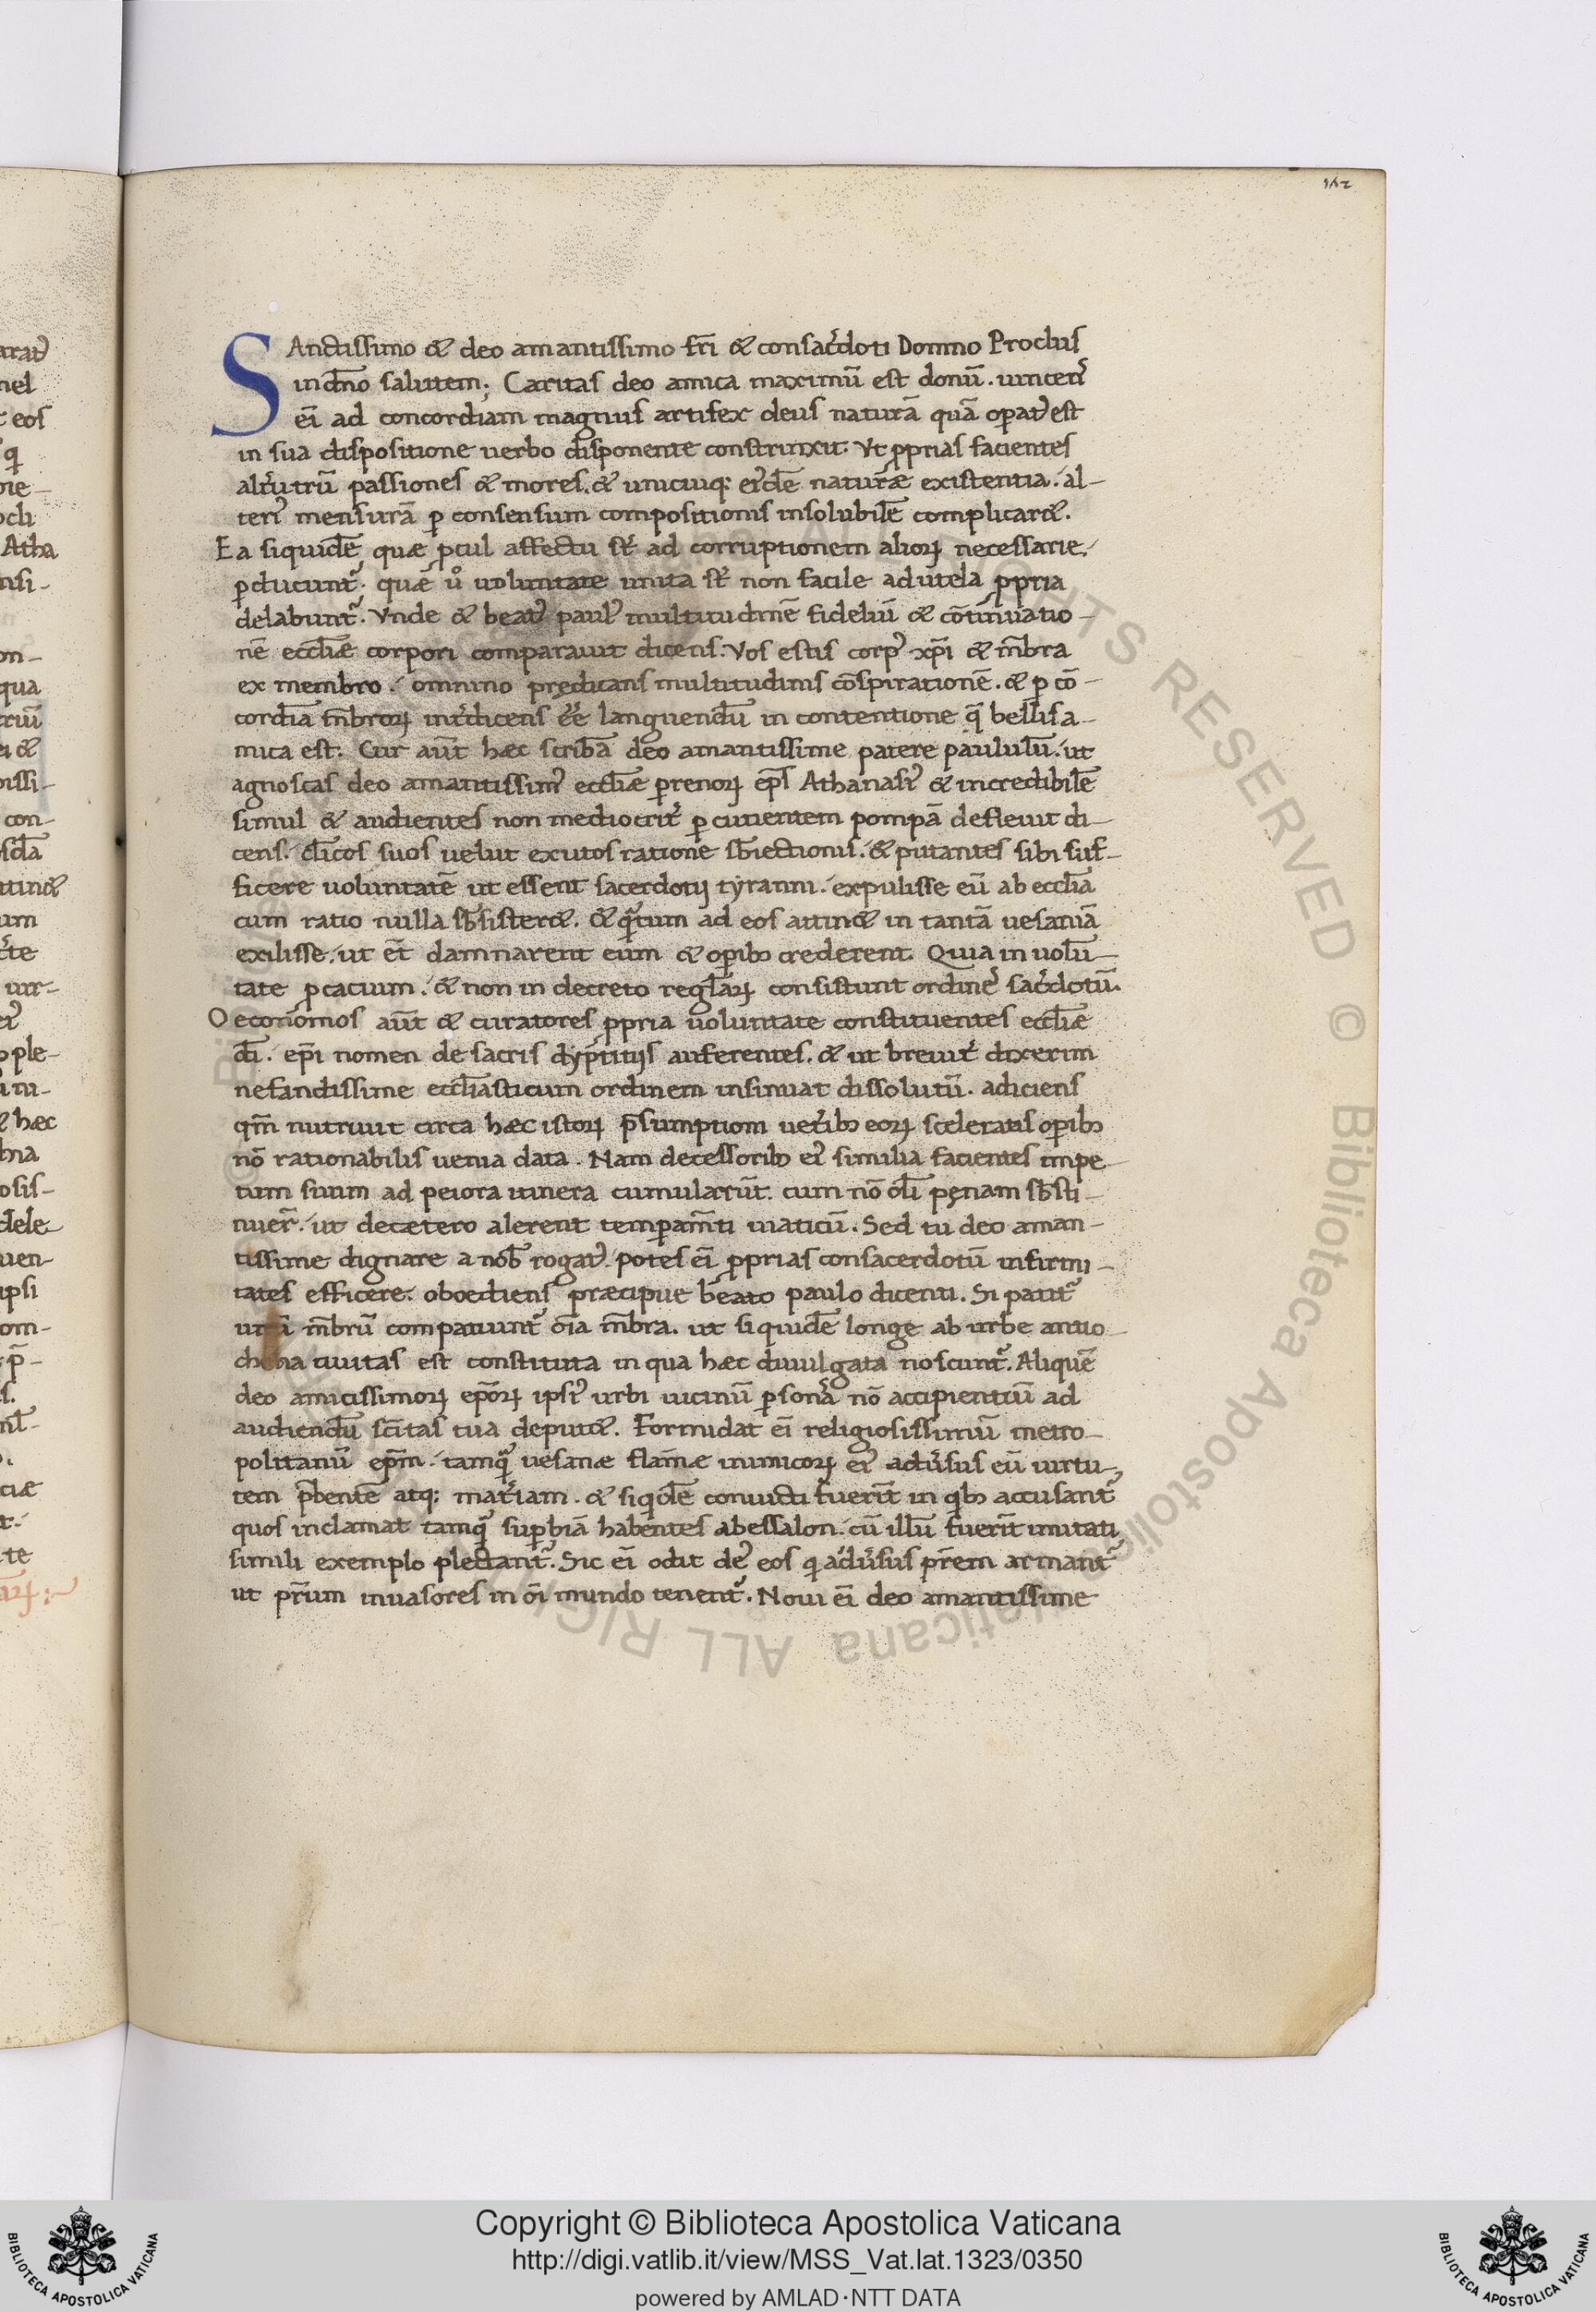 172
SAnctissimo & deo amantissimo fr̄i & consac̄doti Domno Proclus
in dn̄o salutem; Caritas deo amica maximū est donū. uincenr̄
ei̅ ad concordiam magnus artifex deus naturā quā opatꝰ est
in sua dispositione uerbo disponente constrinxit. Vt ꝓprias facientes
alt̓utrū passiones & mores. & unicuiq; eiꝰdē naturæ existentia. al-
teriꝰ mensurā ꝑ consensum compositionis insolubilē complicar&.
Ea siquidē quæ ꝓcul affectu st̄ ad corruptionem alioꝝ necessarie
ꝑducunt̃. quæ ů uoluntate unita st̄ non facile ad utela ꝓpria
delabunt̃. Vnde & beatꝰ paulꝰ multitudinē fideliū & cōtinuatio-
nē ecclīæ corpori comparauit dicens. Vos estis corpꝰ xp̄i & mb̄ra
ex membro. omnino prędicans multitudinis cōspirationē. & ꝑ cō-
cordiā mb̄roꝝ int̓dicens ēē languendū in contentione q̄ bellis a-
mica est. Cur aūt hæc scribā deo amantissime patere paululū. ut
agnoscas deo amantissimꝰ ecclīæ perrenoꝝ ep̄s Athanasiꝰ & incredibilē
simul & audientes non mediocrit̓ ꝑcutientem pompā defleuit di-
cens. cl̄icos suos uelut excitos ratione sb̄iectionis. & putantes sibi suf-
ficere uoluntatē ut essent sacerdotij tyranni. expulisse eū ab ecclīa
cum ratio nulla sb̄sister&. & q̃tum ad eos attin& in tantā uesaniā
exilisse. ut et̄ damnarent eum & opibꝫ crederent. Quia in uolū-
tate ꝓcacium. & non in decreto regl̄aꝝ consistunt ordinēꝰ sac̄dotū.
Oeconomos aūt & curatores ꝓpria uoluntate constituentes ecclīæ
dī. ep̄i nomen de sacris dyptitijs auferentes. & ut breuit̓ dixerim
nefandissime ecclīasticum ordinem insinuat dissolutū. adiciens
qm̄ nutriuit circa hæc istoꝝ p̄sumptiom uet̓ibꝫ eoꝝ sceleratis opibꝫ
nō rationabilis uenia data. Nam decessoribꝫ eiꝰ similia facientes impe-
tum suum ad peiora itinera cumularūt. cum nō olī pęnam sb̄sti-
nuer̄. ut decætero alerent tempam̄ti uiaticū. Sed tu deo aman-
tissime dignare a nob̄ rogatꝰ. Potes ei̅ ꝓprias consacerdotū infirmi-
tates efficere. oboediens præcipue beato paulo dicenti. Si patit̃
unū mb̄rū compatiunt̃ oīa mb̄ra. ut siquidē longe ab urbe antio-
chena ciuitas est constituta in qua hæc diuulgata noscunt̃. Aliquē
deo amicissimoꝝ ep̄oꝝ ipsiꝰ urbi uicinū ꝑsonā nō accipientiū ad
audiendū sc̄itas tua deput&. Formidat ei̅ religiosissimū metro-
politanū ep̄m. tamq̃ uesanæ flam̄æ inimicoꝝ eiꝰ adu̓sus eū uirtu-
tem p̄bentē atq; mat̓iam. & siq̓dē conuicti fuerīt in q̓bꝫ accusant̃
quos inclamat tamq̃ supbiā habentes abessalon. cū illū fuerīt imitati
simili exemplo plectant̃. Sic ei̅ odit deꝰ eos qi adu̓sus pr̄em armant̃
ut pr̄ium inuasores in oī mundo tenent̃. Noui ei̅ deo amantissime
Copyright © Biblioteca Apostolica Vaticana
http://digi.vatlib.it/view/MSS_Vat.lat.1323/0350
powered by AMLAD·NTT DATA